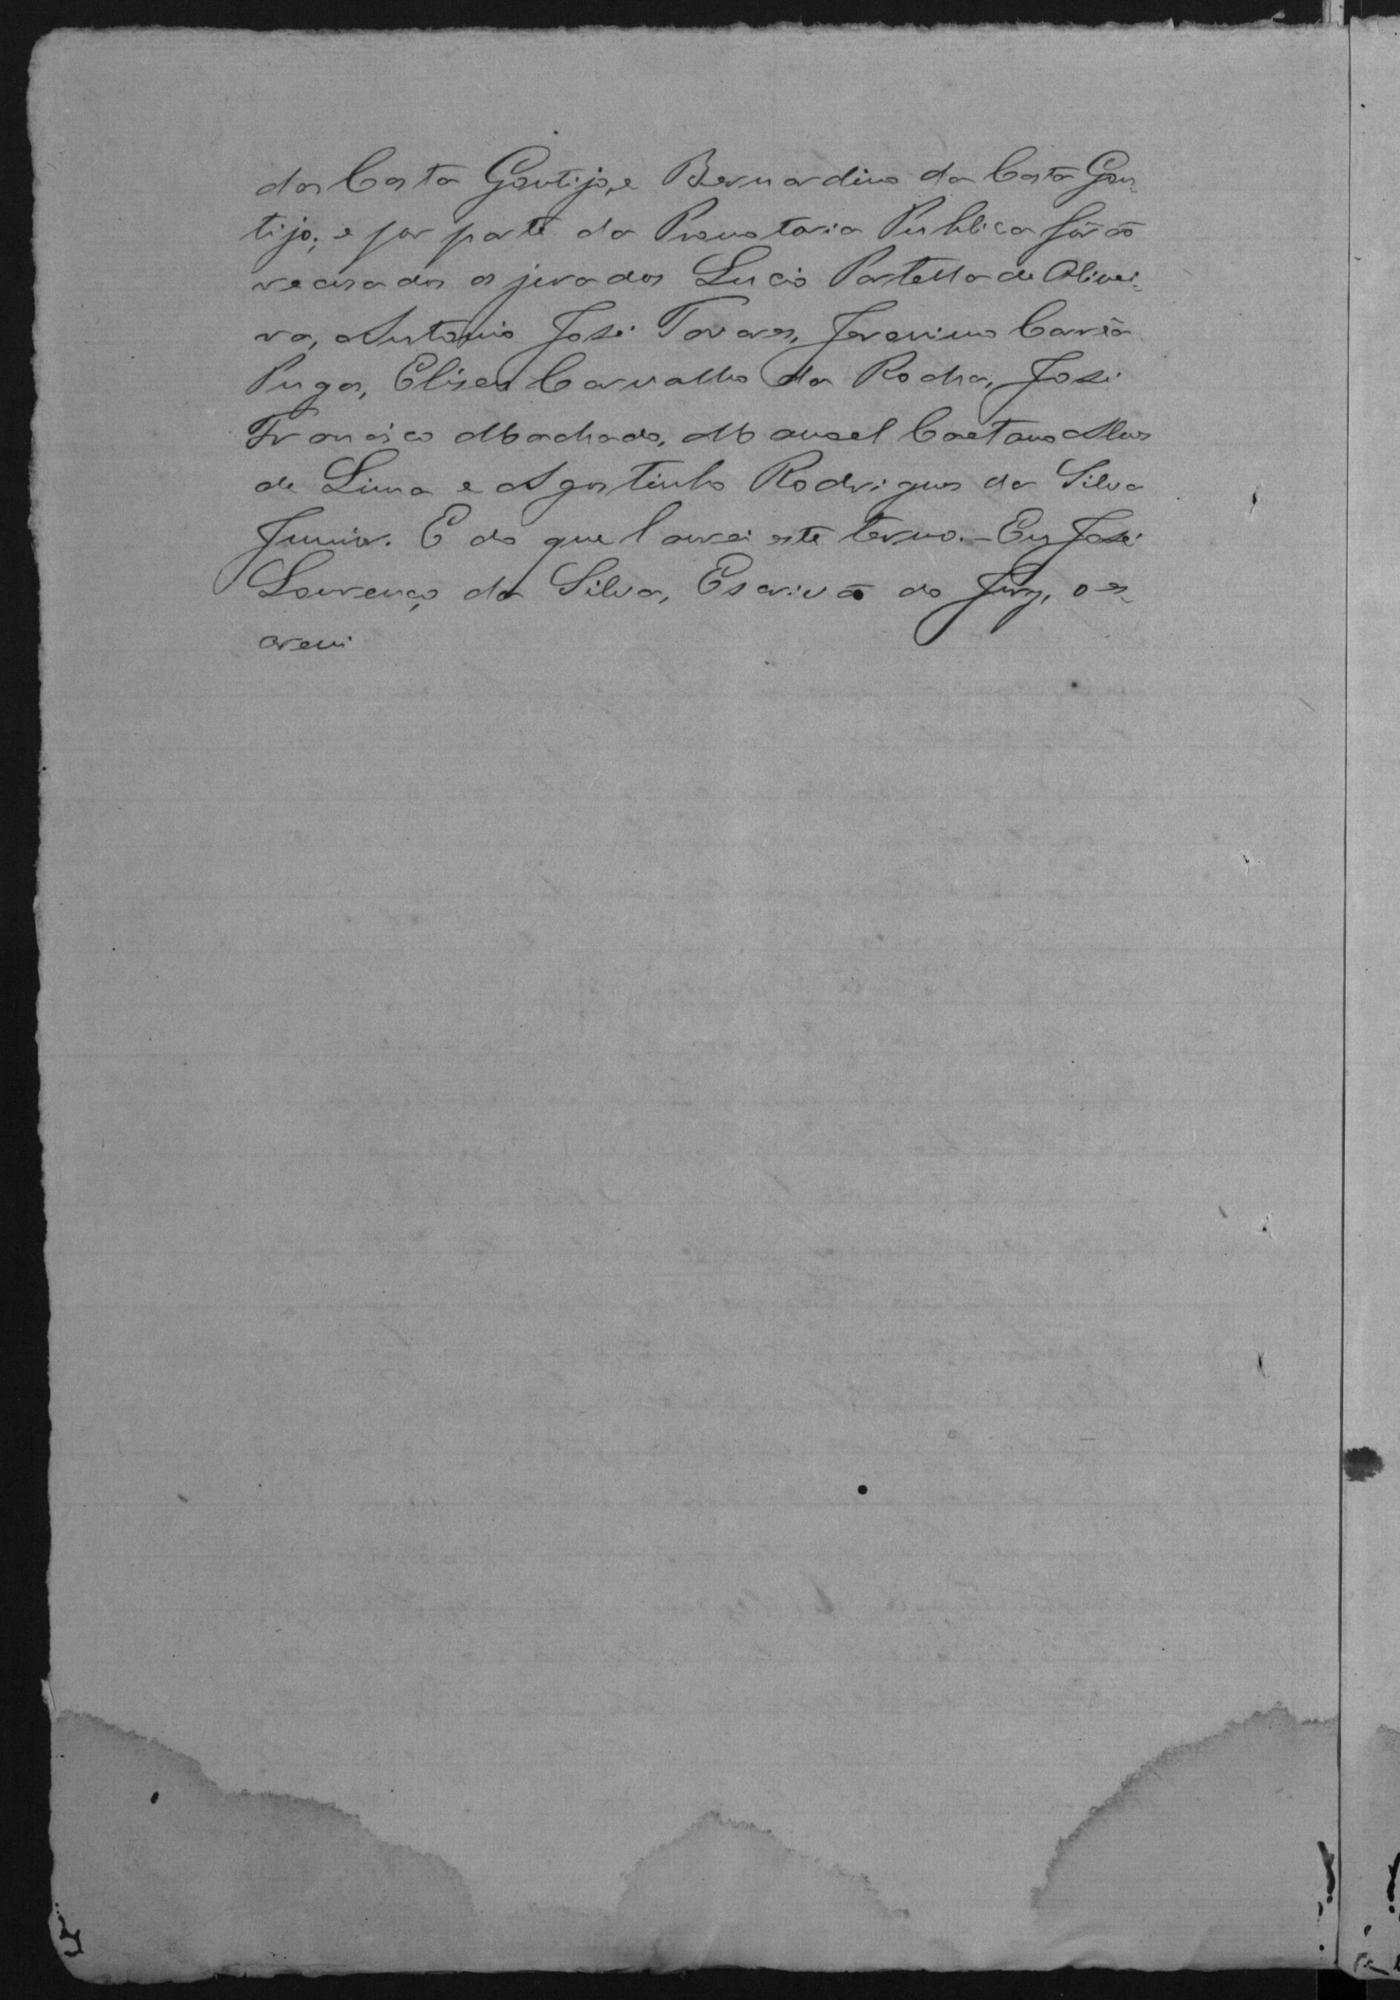 da Costa Gontijo, e Bernardino da Costa Gon-
tijo; e por parte da Promotoria Publica forão
recusados os jurados Lucio Portella de Olivei-
ra, Antonio José Tavares, Jeronimo Corrêa
Puga, Eliseu Carvalho da Rocha, José
Francisco Machado, Manoel Caetano Alves
de Lima e Agostinho Rodrigues da Silva
Junior. E do que lavrei este termo. – Eu José
Lourenço da Silva, Escrivão do Jury, o es-
crevi